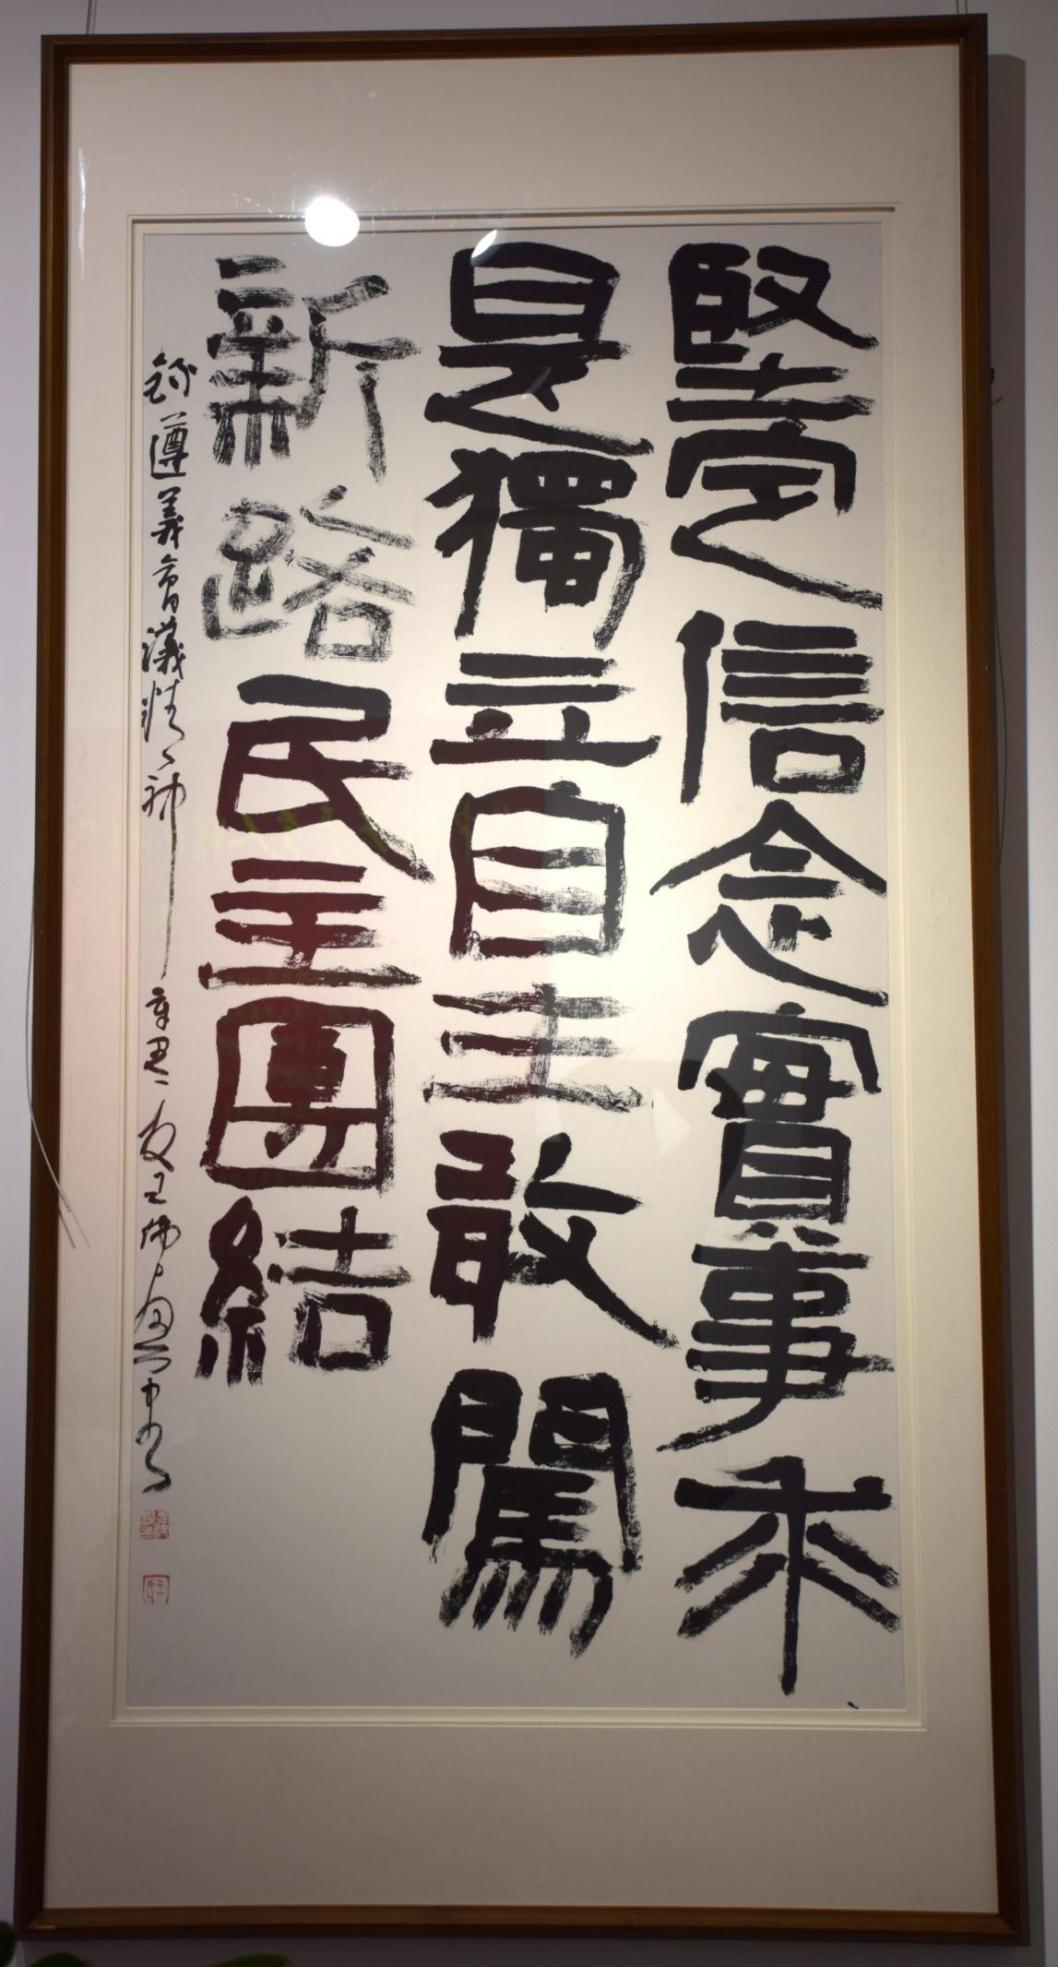 堅定信念實事求
是獨立自主敢闖
新路民主團結
錄遵義會議精神 辛丑 夏